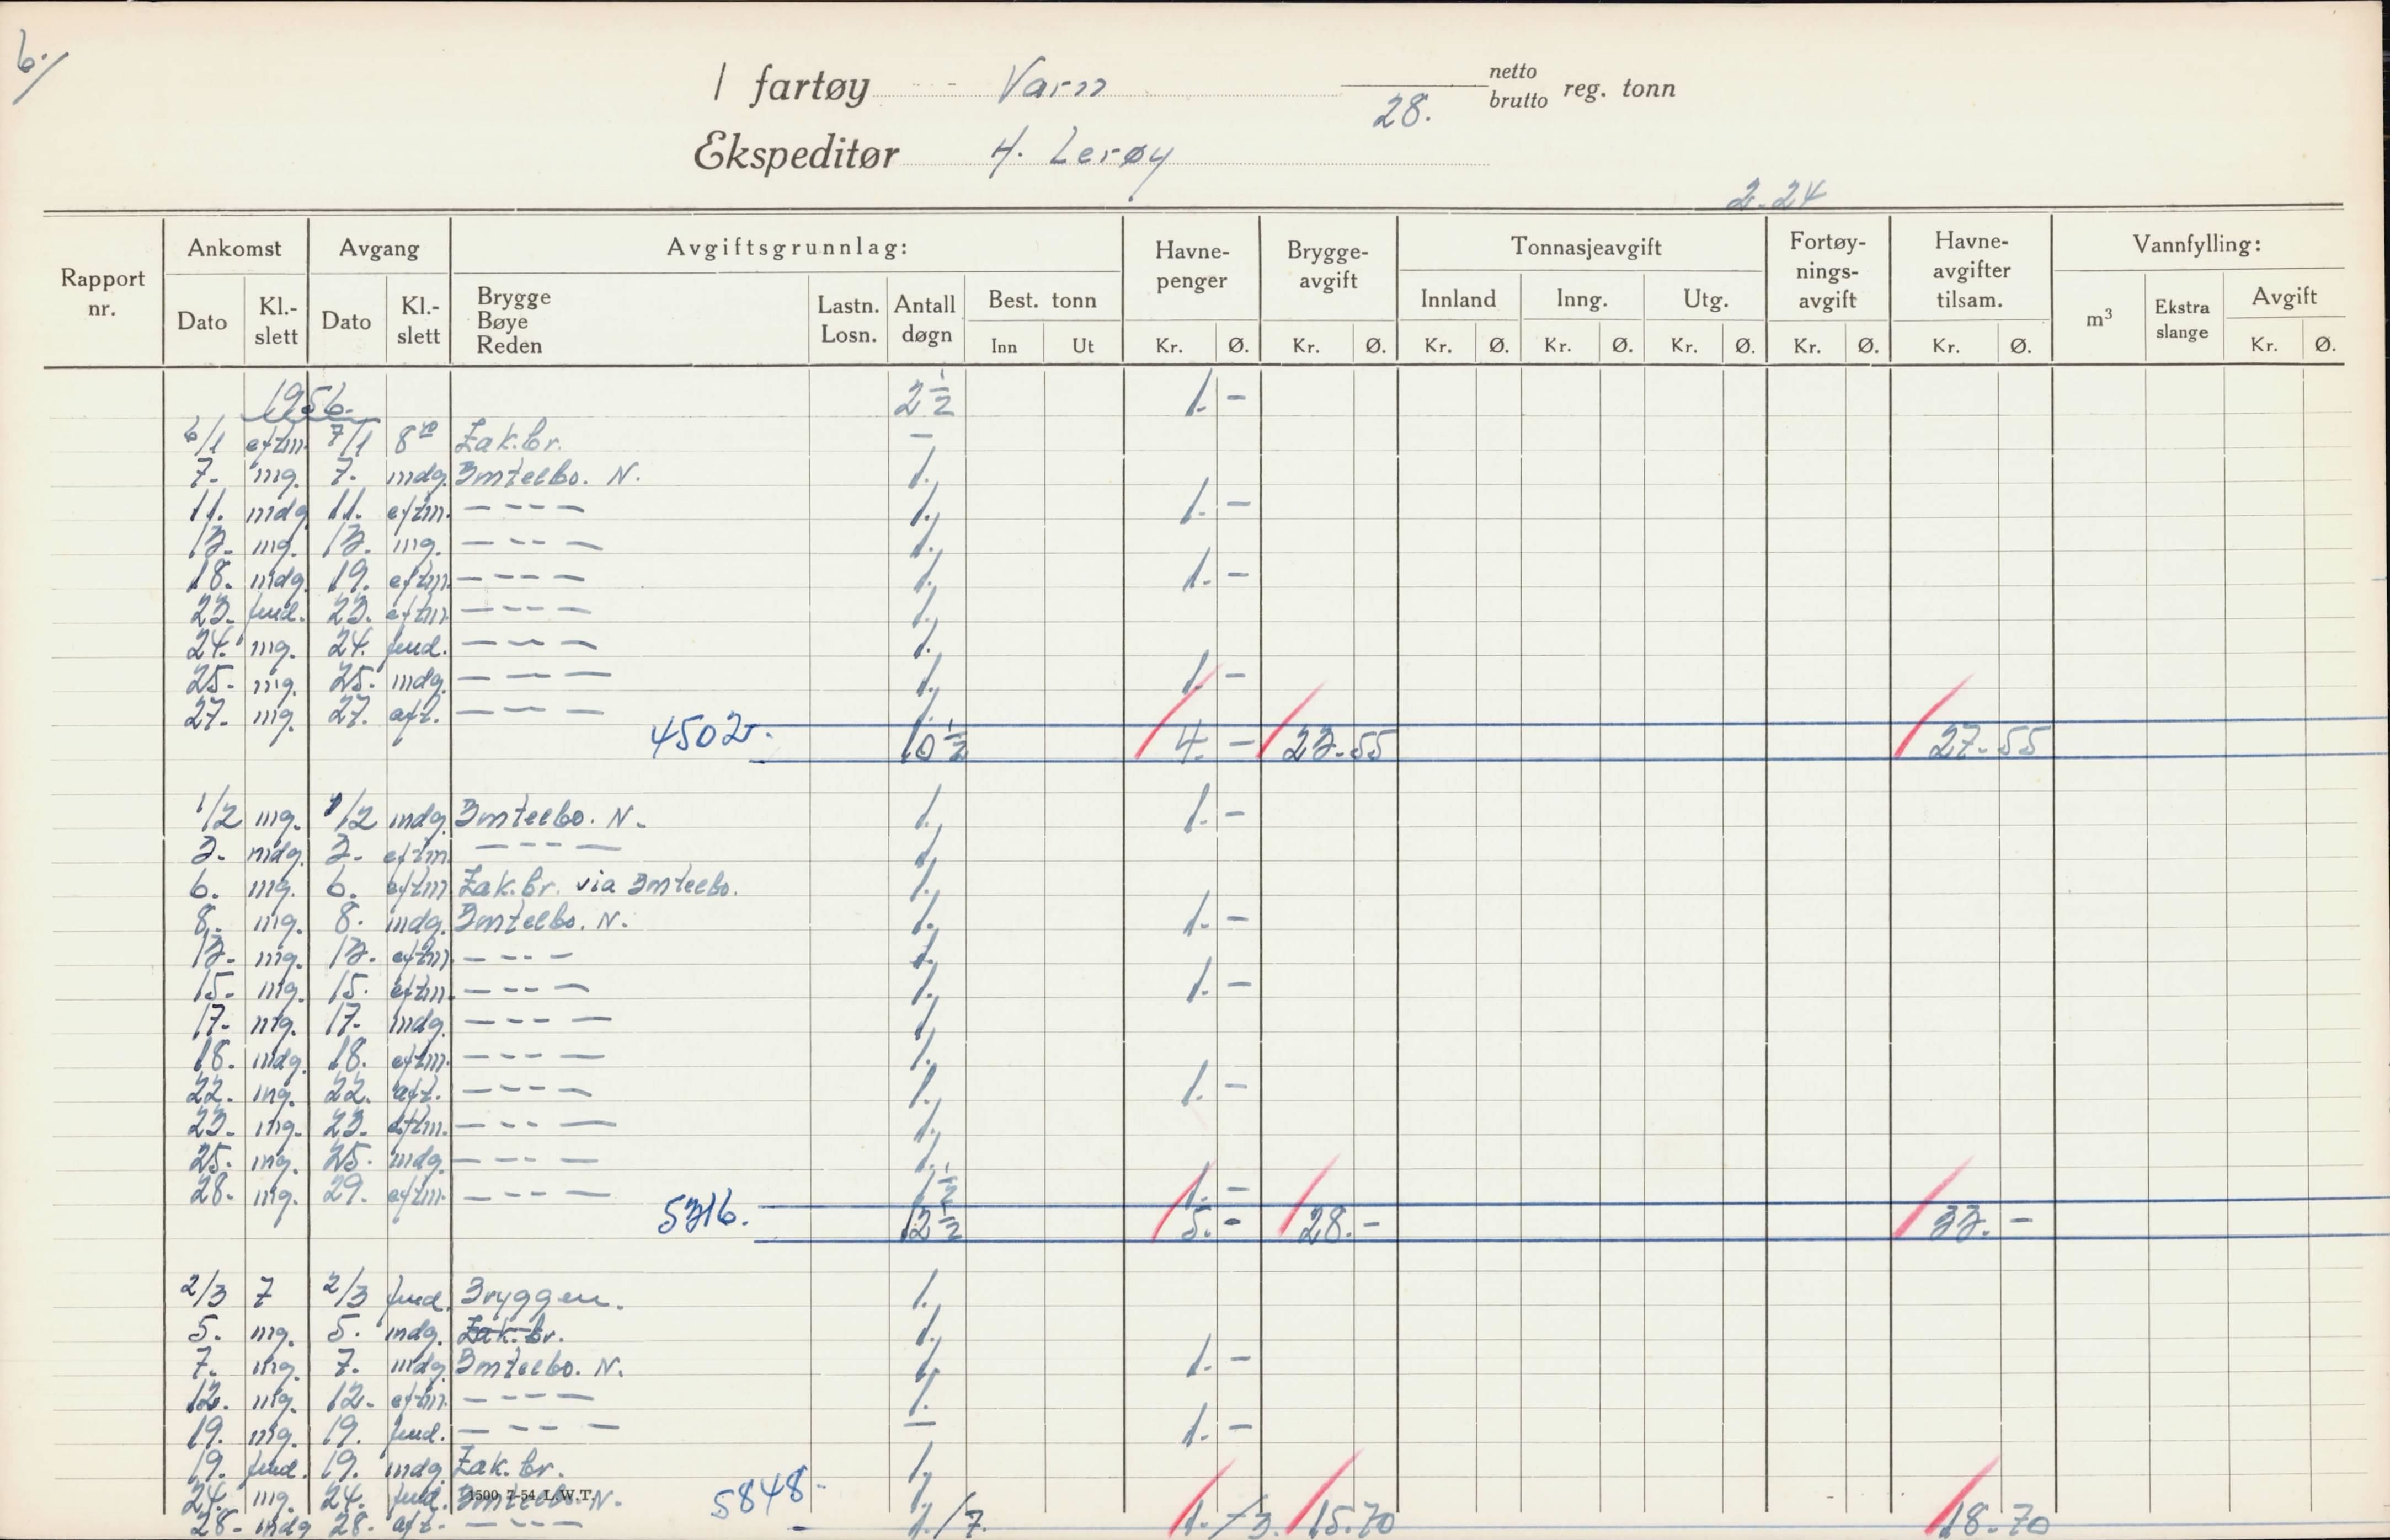 6./
I fartøy Varn 28. netto brutto reg. tonn
Ekspeditør H. Lerøy
2.24
Rapport nr. Ankomst Avgang Avgiftsgrunnlag: Havne-penger Brygge-avgift Tonnasjeavgift Fortøy-nings-avgift Havne-avgifter tilsam. Vannfylling:
Dato Kl.-slett Dato Kl.-slett Brygge Bøye Reden Lastn. Losn. Antall døgn Best. tonn Innland Inng. Utg. m³ Ekstra slange Avgift
Inn Ut Kr. Ø. Kr. Ø. Kr. Ø. Kr. Ø. Kr. Ø. Kr. Ø. Kr. Ø. Kr. Ø.
1956. 2½ 1. –
6/1 eftm. 7/1 8 Zak.br. –
7. mg. 7. mdg. N. 1.
11. mdg. 11. eftm. – – – – 1. 1. –
13. mg. 13. mg. – – – – 1.
18. mdg. 19. eftm. – – – – 1. 1. –
23. fmd. 23. eftm. – – – – 1.
24. mg. 24. fmd. – – – 1.
25. mg. 25. mdg. – – – – 1. 1. –
27. mg. 27. aft. – – – 1.
4502. 10½ 4. – 23.55 27.55
1/2 mg. 1/2 mdg. N. 1. 1. –
3. mdg. 3. eftm. – – – – 1.
6. mg. 6. eftm. Zak.br. via 1.
8. mg. 8. mdg. N. 1. 1. –
13. mg. 13. eftm. – – – – 1.
15. mg. 15. eftm. – – – – 1. 1. –
17. mg. 17. mdg. – – – – 1.
18. mdg. 18. eftm. – – – – 1.
22. mg. 22. aft. – – – – 1. 1. –
23. mg. 23. eftm. – – – – 1.
25. mg. 25. mdg. – – – – 1.
28. mg. 29. eftm. – – – – 1½ 1. –
5316. 12½ 5. – 28. – 33. –
2/3 7 2/3 fmd. Bryggen. 1.
5. mg. 5. mdg. Zak.br. 1.
7. mg. 7. mdg. N. 1. 1. –
12. mg. 12. eftm. – – – – 1.
19. mg. 19. fmd. – – – – – 1. –
19. fmd. 19. mdg. Zak.br. 1.
24. mg. 24. fmd. N. 5848. 1.
1500 7-54 L.W.T.
28. mdg 28. aft. – – – – 1./7. 1. –/3. 15.70 18.70